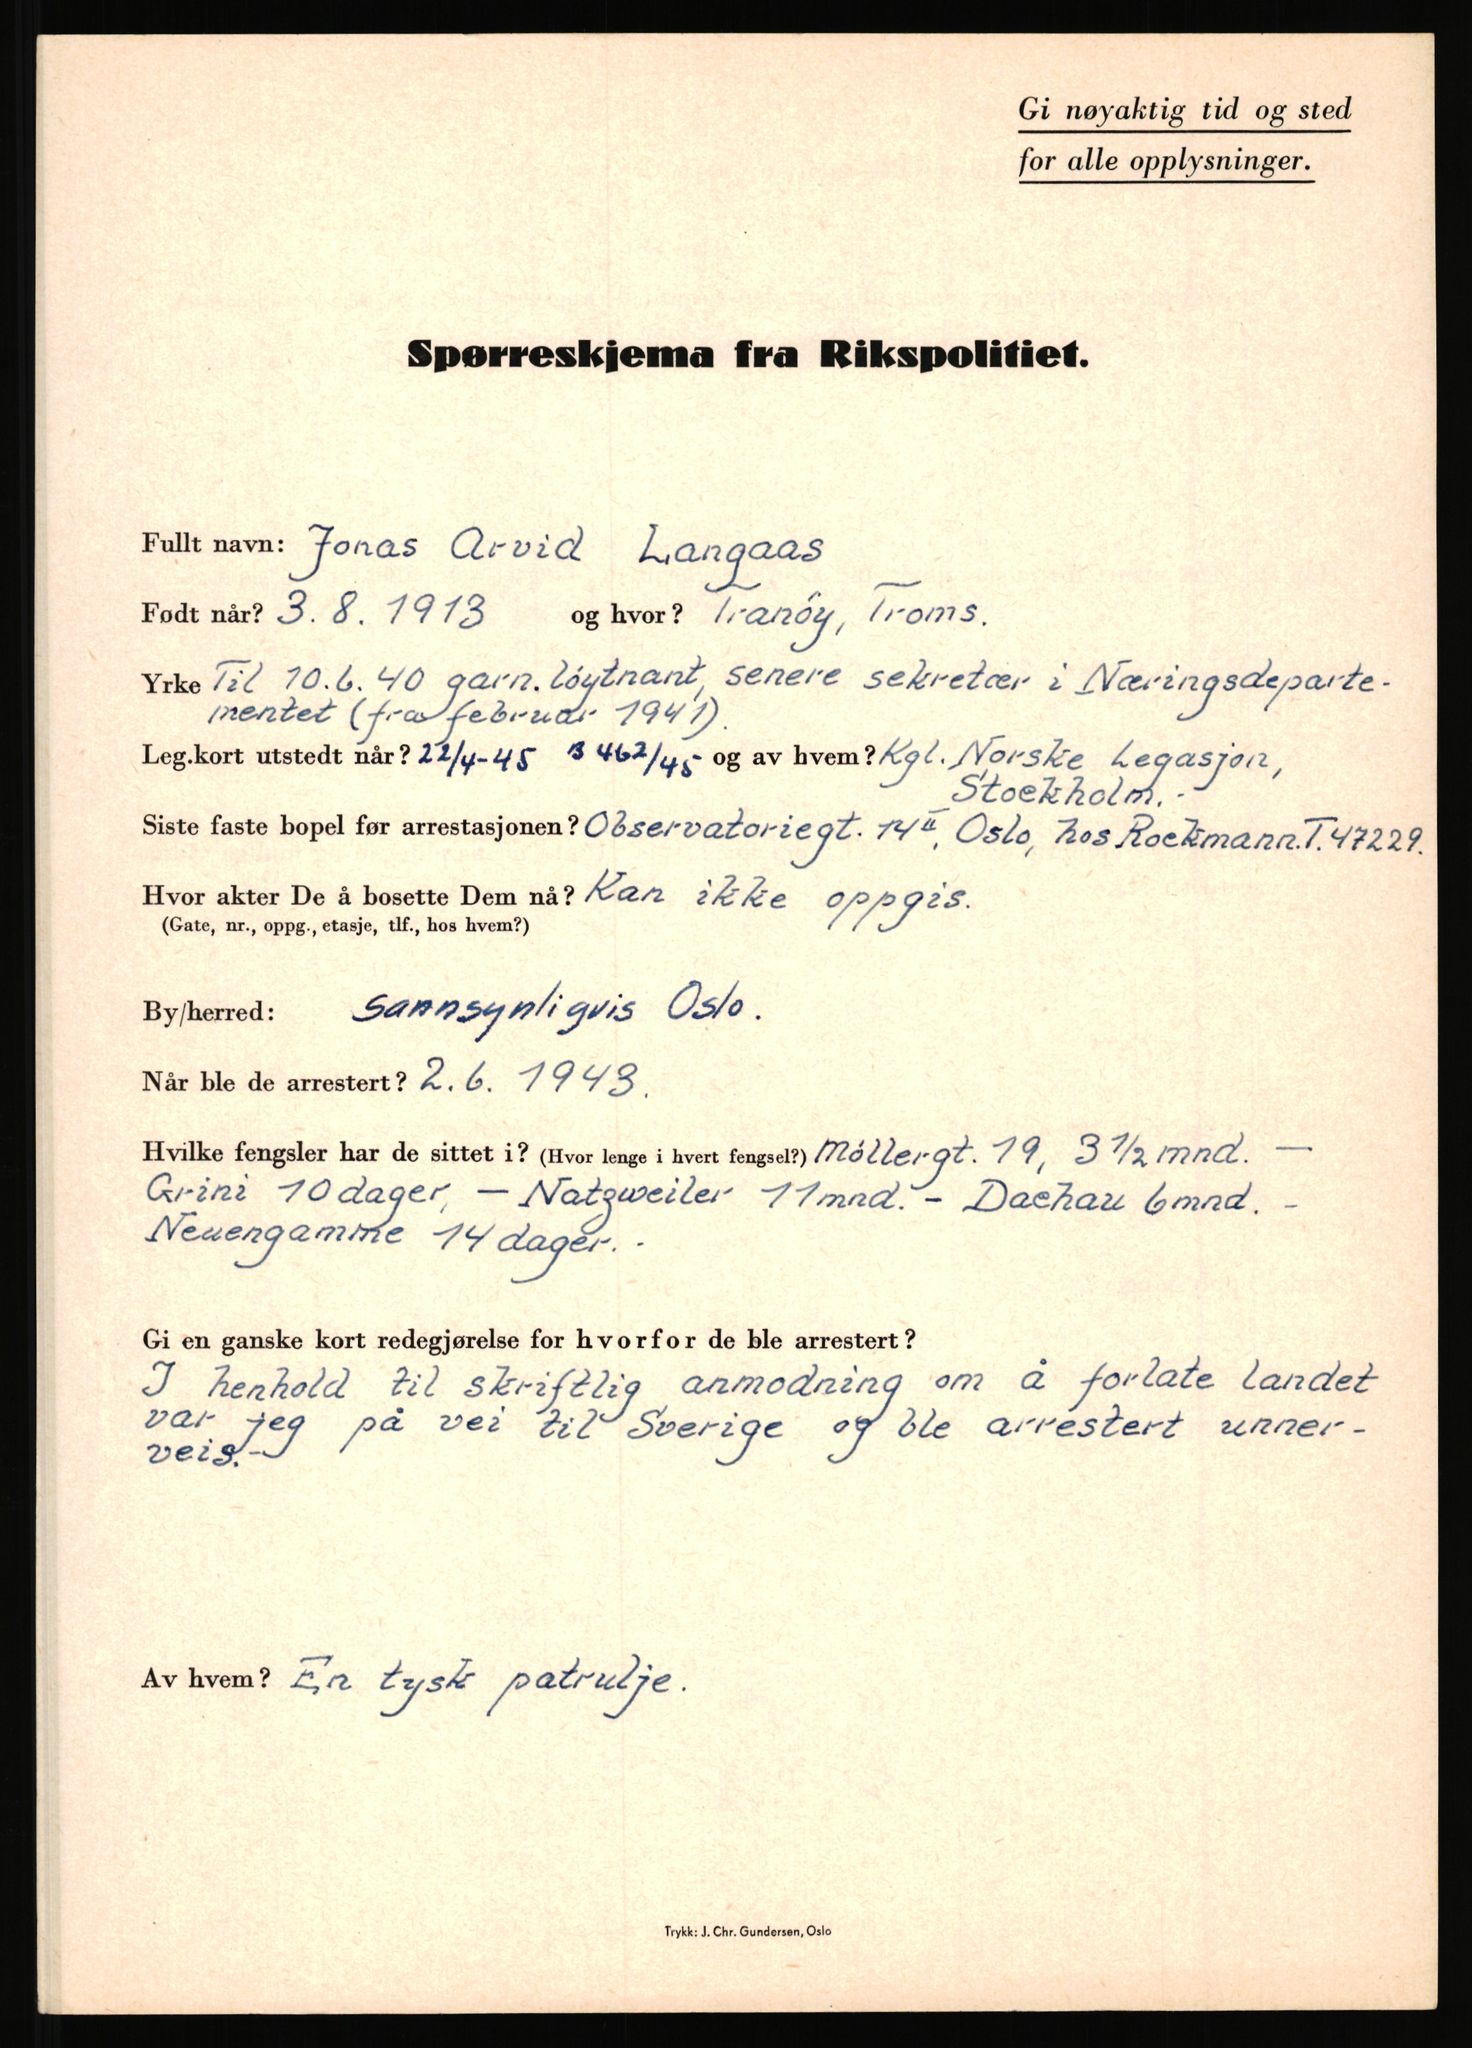 Gi nøyaktig tid og sted
for alle opplysninger.
Spørreskjema fra Rikspolitiet.
Fullt navn: Jonas Arvid Langaas
Født når? 3. 8. 1913 og hvor? Tranöy, Troms.
Yrke Til 10.6.40 garn. löytnant, senere sekretær i Næringsdeparte-
mentet (fra februar 1941).
Leg.kort utstedt når? 22/4-45 B 462/45 og av hvem? Kgl. Norske Legasjon,
Stockholm. -
Siste faste bopel før arrestasjonen? Observatoriegt. 14 II, Oslo, hos Rockmann. T. 47229.
Hvor akter De å bosette Dem nå? Kan ikke oppgis.
(Gate, nr., oppg., etasje, tlf., hos hvem?)
By/herred: sannsynligvis Oslo.
Når ble de arrestert? 2.6. 1943.
Hvilke fengsler har de sittet i? (Hvor lenge i hvert fengsel?) Möllergt. 19, 3 1/2 mnd. —
Grini 10 dager, — Natzweiler 11 mnd. - Dachau 6 mnd. -
Neuengamme 14 dager. -
Gi en ganske kort redegjørelse for hvorfor de ble arrestert?
I henhold til skriftlig anmodning om å forlate landet
var jeg på vei til Sverige og ble arrestert unner-
veis. -
Av hvem? En tysk patrulje.
Trykk: J. Chr. Gundersen, Oslo